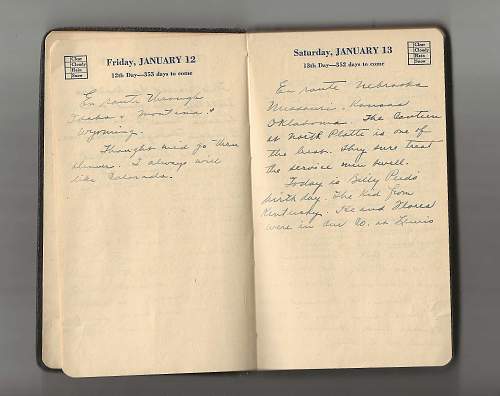 Clear
Cloudy
Rain
Snow
Friday, JANUARY 12
12th Day—353 days to come
En route through
Idaho & Montana &
Wyoming.
Thought we'd go thru
Denver. I always will
like Colorado.
Saturday, JANUARY 13
13th Day—352 days to come
Clear
Cloudy
Rain
Snow
En route Nebraska
Missouri, Kansas
Oklahoma. The Canteen
at North Platte is one of
the best. They sure treat
the service men swell.
Today is Billy
birthday. The kid from
Kentucky. and
were in our Co. at Lewis